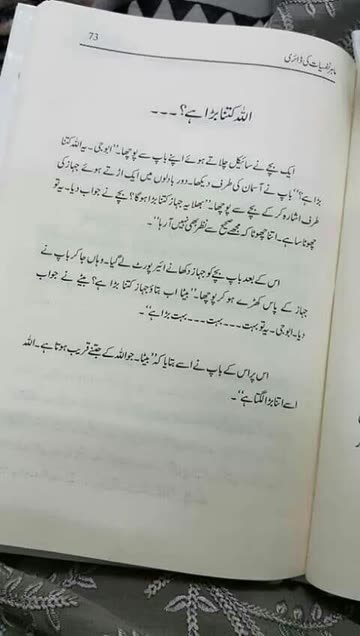 73
ماہر نفسیات کی ڈائری
اللہ کتنا بڑا ہے؟ ۔۔۔
ایک بچے نے سائیکل چلاتے ہوئے اپنے باپ سے پوچھا۔ ”ابو جی۔ یہ اللہ کتنا
بڑا ہے؟“ باپ نے آسمان کی طرف دیکھا۔ دور بادلوں میں ایک اڑتے ہوئے جہاز کی
طرف اشارہ کر کے بچے سے پوچھا۔ ”بھلا یہ جہاز کتنا بڑا ہو گا؟ بچے نے جواب دیا۔ یہ تو
چھوٹا سا ہے۔ اتنا چھوٹا کہ مجھے صحیح سے نظر بھی نہیں آ رہا“۔
اس کے بعد باپ بچے کو جہاز دکھانے ائیر پورٹ لے گیا۔ وہاں جا کر باپ نے
جہاز کے پاس کھڑے ہو کر پوچھا۔ ”بیٹا اب بتاؤ جہاز کتنا بڑا ہے؟ بیٹے نے جواب
دیا۔ ابو جی۔ یہ تو بہت۔۔۔۔ بہت۔۔۔۔ بہت بڑا ہے“۔
اس پر اس کے باپ نے اسے بتایا کہ ”بیٹا۔ جو اللہ کے جتنے قریب ہوتا ہے۔ اللہ
اسے اتنا بڑا لگتا ہے“۔